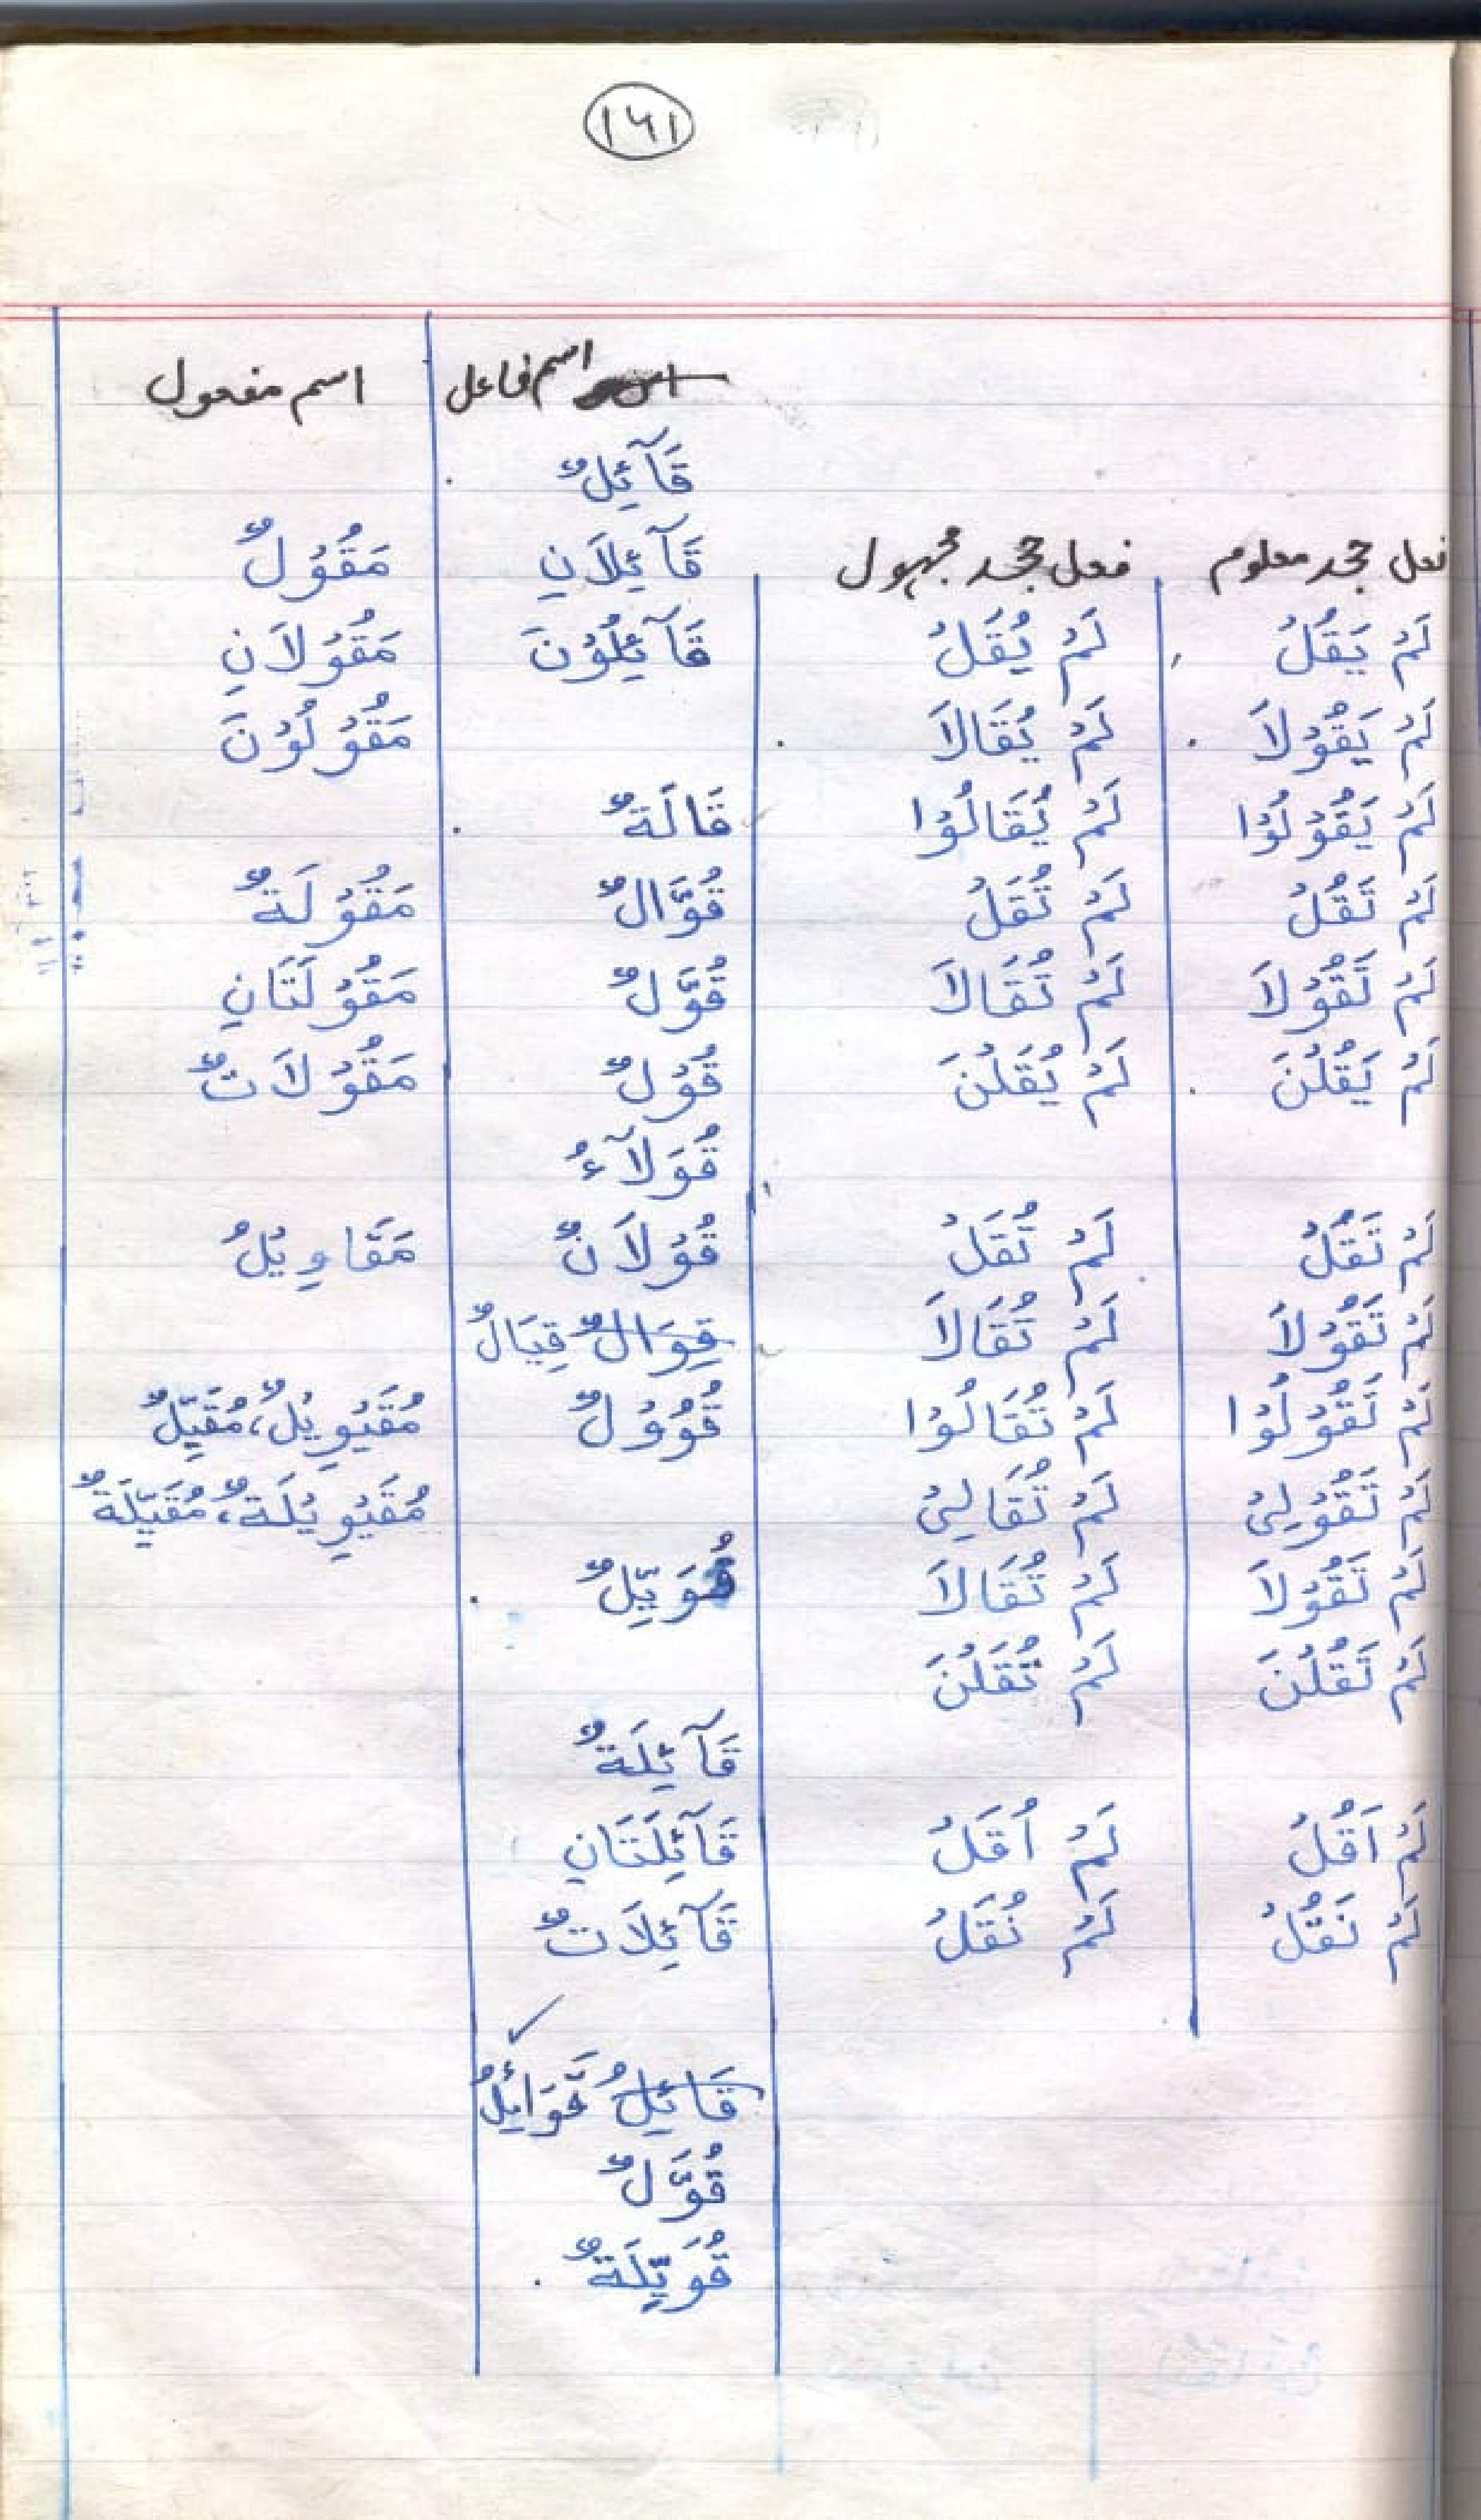 ۱۶۱
اسم فاعل اسم مفعول
قَآئِلٌ
فعل جحد معلوم فعل جحد مجهول قَآئِلَانِ مَقُوْلٌ
لَمْ يَقُلْ لَمْ يُقَلْ قَآئِلُوْنَ مَقُوْلَانِ
لَمْ يَقُوْلَا لَمْ يُقَالَا مَقُوْلُوْنَ
لَمْ يَقُوْلُوْا لَمْ يُقَالُوْا قَالَةٌ
لَمْ تَقُلْ لَمْ تُقَلْ قُوَّالٌ مَقُوْلَةٌ
لَمْ تَقُوْلَا لَمْ تُقَالَا قُوَّلٌ مَقُوْلَتَانِ
لَمْ يَقُلْنَ لَمْ يُقَلْنَ قُوْلٌ مَقُوْلَاتٌ
قُوَلَآءُ
لَمْ تَقُلْ لَمْ تُقَلْ قُوْلَانٌ مَقَاوِيْلُ
لَمْ تَقُوْلَا لَمْ تُقَالَا قِوَالٌ قِيَالٌ
لَمْ تَقُوْلُوْا لَمْ تُقَالُوْا قُوُوْلٌ مُقَيْوِيْلٌ، مُقَيِّلٌ
لَمْ تَقُوْلِىْ لَمْ تُقَالِىْ مُقَيْوِيْلَةٌ، مُقَيِّلَةٌ
لَمْ تَقُوْلَا لَمْ تُقَالَا قُوَيِّلٌ
لَمْ تَقُلْنَ لَمْ تُقَلْنَ
قَآئِلَةٌ
لَمْ اَقُلْ لَمْ اُقَلْ قَآئِلَتَانِ
لَمْ نَقُلْ لَمْ نُقَلْ قَآئِلَاتٌ
قَائِلُ قَوَائِلُ
قُوَّلٌ
قُوَيِّلَةٌ